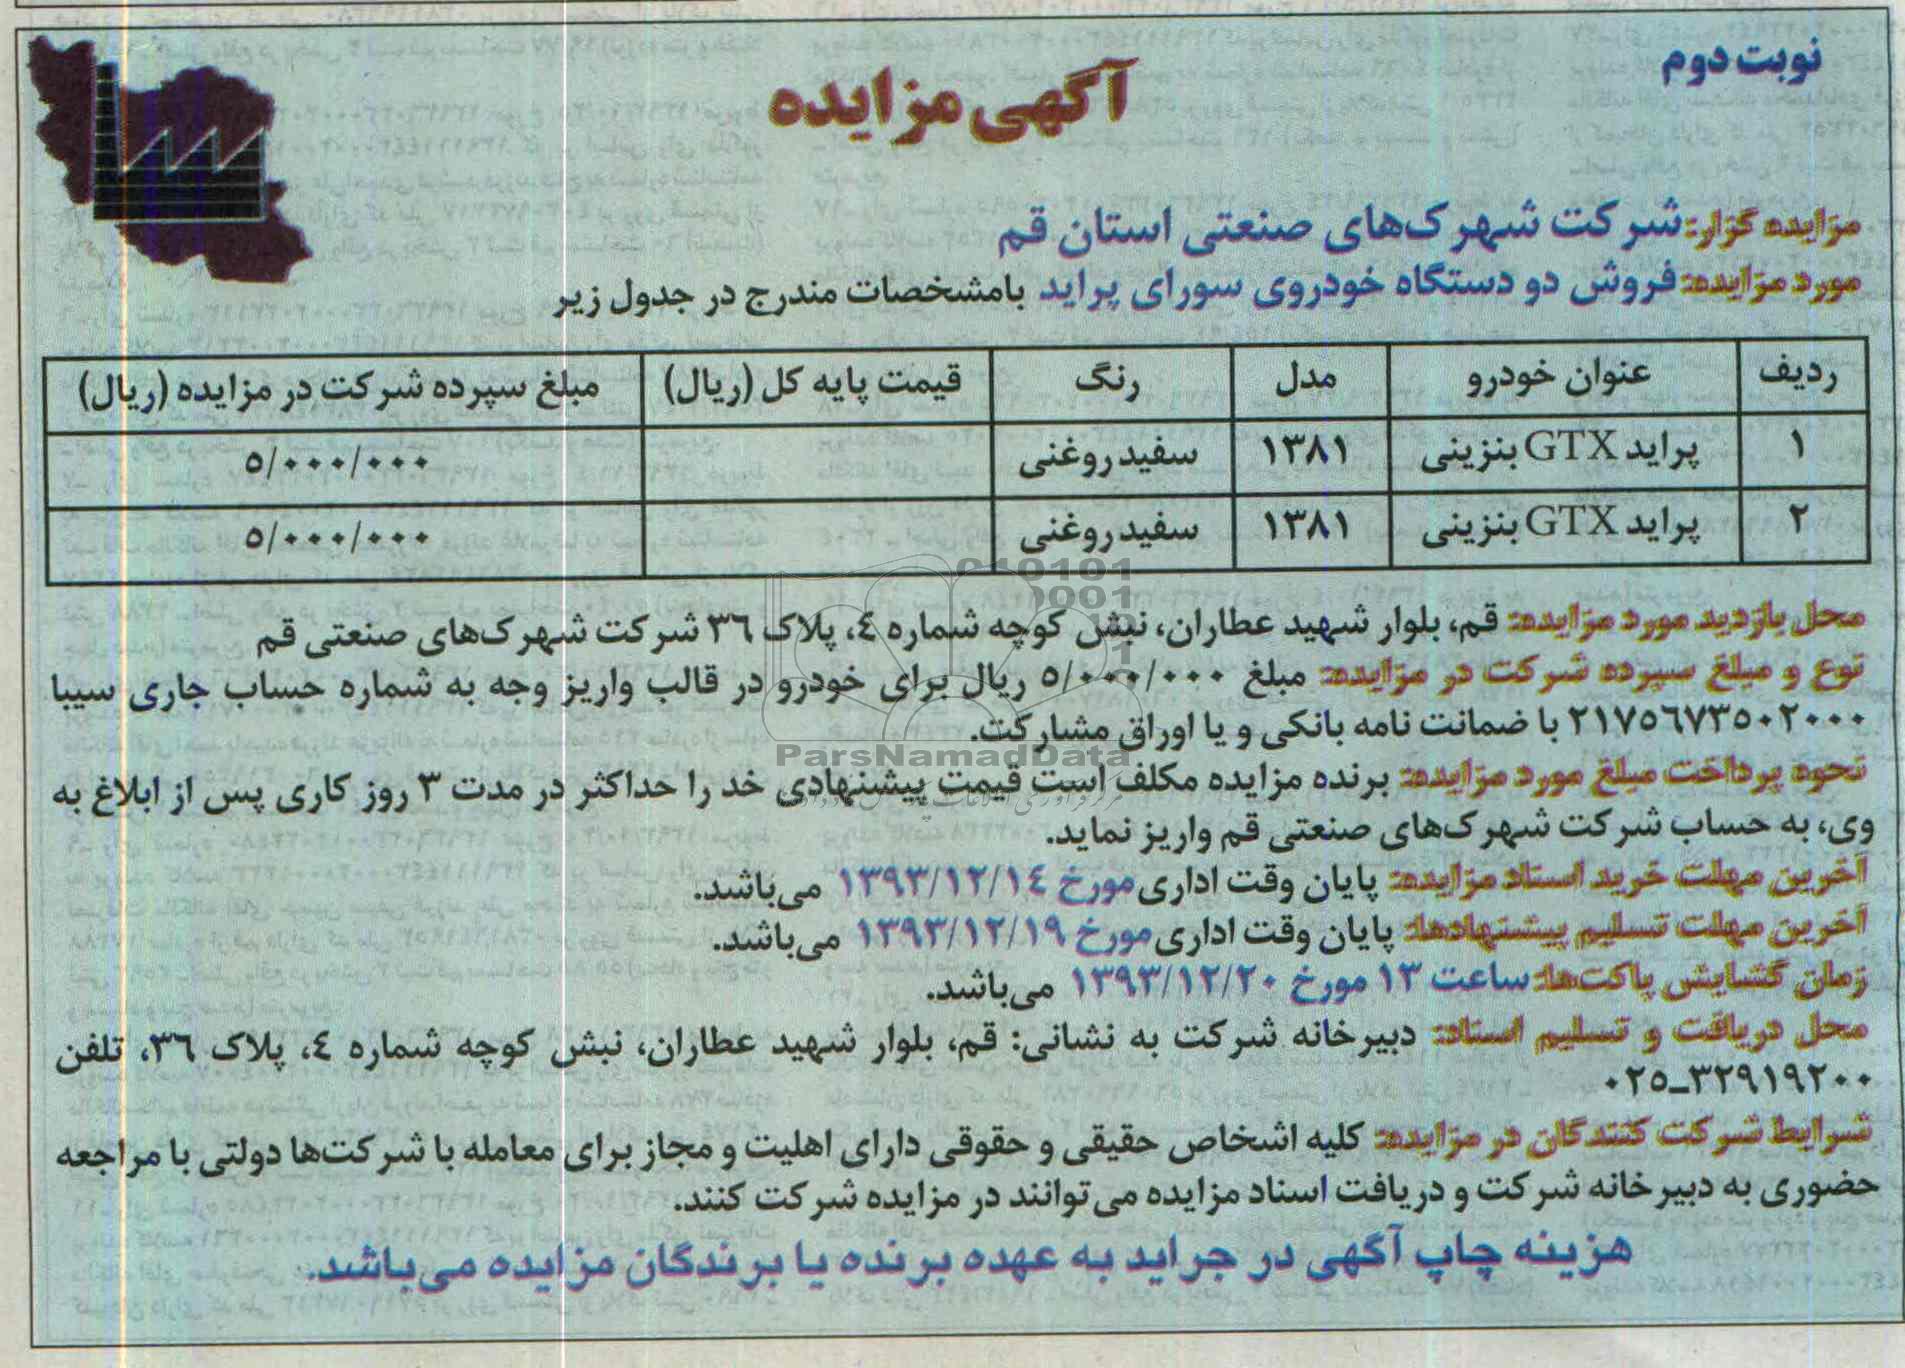 نوبت دوم
آگهی مزایده
مزایده گزار: شرکت شهرک‌های صنعتی استان قم
مورد مزایده: فروش دو دستگاه خودروی سورای پراید بامشخصات مندرج در جدول زیر
ردیف	عنوان خودرو	مدل	رنگ	قیمت پایه کل (ریال)	مبلغ سپرده شرکت در مزایده (ریال)
۱	پراید GTX بنزینی	۱۳۸۱	سفیدروغنی		۵/۰۰۰/۰۰۰
۲	پراید GTX بنزینی	۱۳۸۱	سفیدروغنی		۵/۰۰۰/۰۰۰
محل بازدید مورد مزایده: قم، بلوار شهید عطاران، نبش کوچه شماره ٤، پلاک ۳٦ شرکت شهرک‌های صنعتی قم
نوع و مبلغ سپرده شرکت در مزایده: مبلغ ۵/۰۰۰/۰۰۰ ریال برای خودرو در قالب واریز وجه به شماره حساب جاری سیبا
۲۱۷۵٦۷۳۵۰۲۰۰۰ با ضمانت نامه بانکی و یا اوراق مشارکت.
نحوه پرداخت مبلغ مورد مزایده: برنده مزایده مکلف است قیمت پیشنهادی خد را حداکثر در مدت ۳ روز کاری پس از ابلاغ به
وی، به حساب شرکت شهرک‌های صنعتی قم واریز نماید.
آخرین مهلت خرید اسناد مزایده: پایان وقت اداری مورخ ۱۳۹۳/۱۲/۱٤ می‌باشد.
آخرین مهلت تسلیم پیشنهادها: پایان وقت اداری مورخ ۱۳۹۳/۱۲/۱۹ می‌باشد.
زمان گشایش پاکت‌ها: ساعت ۱۳ مورخ ۱۳۹۳/۱۲/۲۰ می‌باشد.
محل دریافت و تسلیم اسناد: دبیرخانه شرکت به نشانی: قم، بلوار شهید عطاران، نبش کوچه شماره ٤، پلاک ۳٦، تلفن
۰۲۵-۳۲۹۱۹۲۰۰
شرایط شرکت کنندگان در مزایده: کلیه اشخاص حقیقی و حقوقی دارای اهلیت و مجاز برای معامله با شرکت‌ها دولتی با مراجعه
حضوری به دبیرخانه شرکت و دریافت اسناد مزایده می‌توانند در مزایده شرکت کنند.
هزینه چاپ آگهی در جراید به عهده برنده یا برندگان مزایده می‌باشد.
ParsNamadData